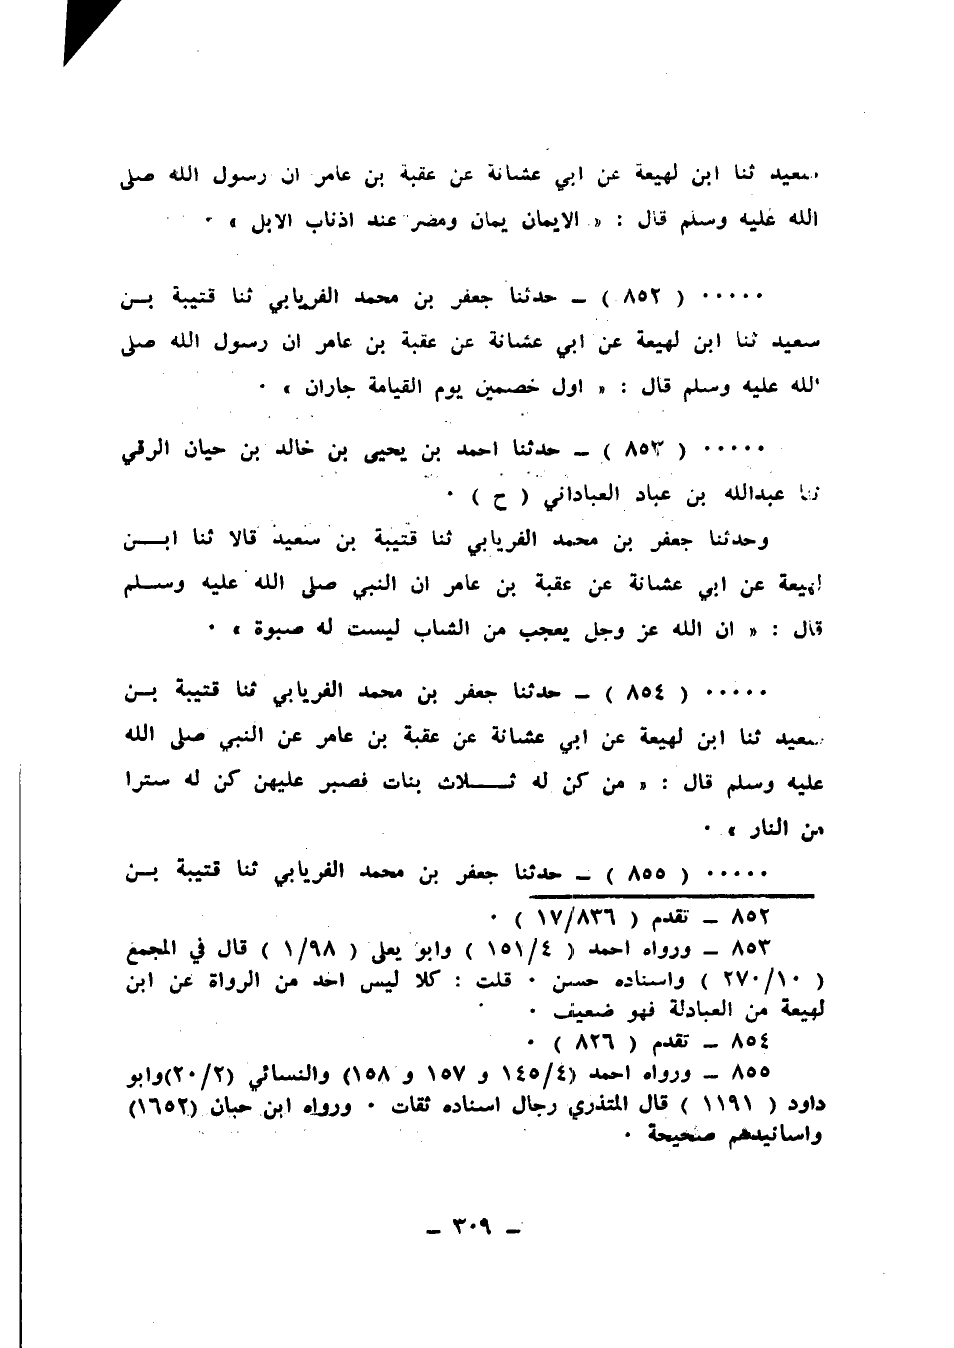 سعيد ثنا ابن لهيعة عن ابي عشانة عن عقبة بن عامر ان رسول الله صلى
الله عليه وسلم قال : « الايمان يمان ومضر عند اذناب الابل » ·
····· ( ٨٥٢ ) ــ حدثنا جعفر بن محمد الفريابي ثنا قتيبة بـن
سعيد ثنا ابن لهيعة عن ابي عشانة عن عقبة بن عامر ان رسول الله صلى
الله عليه وسلم قال : « اول خصمين يوم القيامة جاران » ·
····· ( ٨٥٣ ) ــ حدثنا احمد بن يحيى بن خالد بن حيان الرقي
ثنا عبدالله بن عباد العباداني ( ح ) ·
وحدثنا جعفر بن محمد الفريابي ثنا قتيبة بن سعيد قالا ثنا ابـــن
لهيعة عن ابي عشانة عن عقبة بن عامر ان النبي صلى الله عليه وســلم
قال : « ان الله عز وجل يعجب من الشاب ليست له صبوة » ·
····· ( ٨٥٤ ) ــ حدثنا جعفر بن محمد الفريابي ثنا قتيبة بـن
سعيد ثنا ابن لهيعة عن ابي عشانة عن عقبة بن عامر عن النبي صلى الله
عليه وسلم قال : « من كن له ثـــــلاث بنات فصبر عليهن كن له سترا
من النار » ·
····· ( ٨٥٥ ) ــ حدثنا جعفر بن محمد الفريابي ثنا قتيبة بـن
٨٥٢ ــ تقدم ( ١٧/٨٣٦ ) ·
٨٥٣ ــ ورواه احمد ( ١٥١/٤ ) وابو يعلى ( ١/٩٨ ) قال في المجمع
( ٢٧٠/١٠ ) واسناده حسن · قلت : كلا ليس احد من الرواة عن ابن
لهيعة من العبادلة فهو ضعيف ·
٨٥٤ ــ تقدم ( ٨٢٦ ) ·
٨٥٥ ــ ورواه احمد (١٤٥/٤ و ١٥٧ و ١٥٨) والنسائي (٢٠/٢)وابو
داود ( ١١٩١ ) قال المتذري رجال اسناده ثقات · ورواه ابن حبان (١٦٥٢)
واسانيدهم صحيحة ·
ــ ٣٠٩ ــ